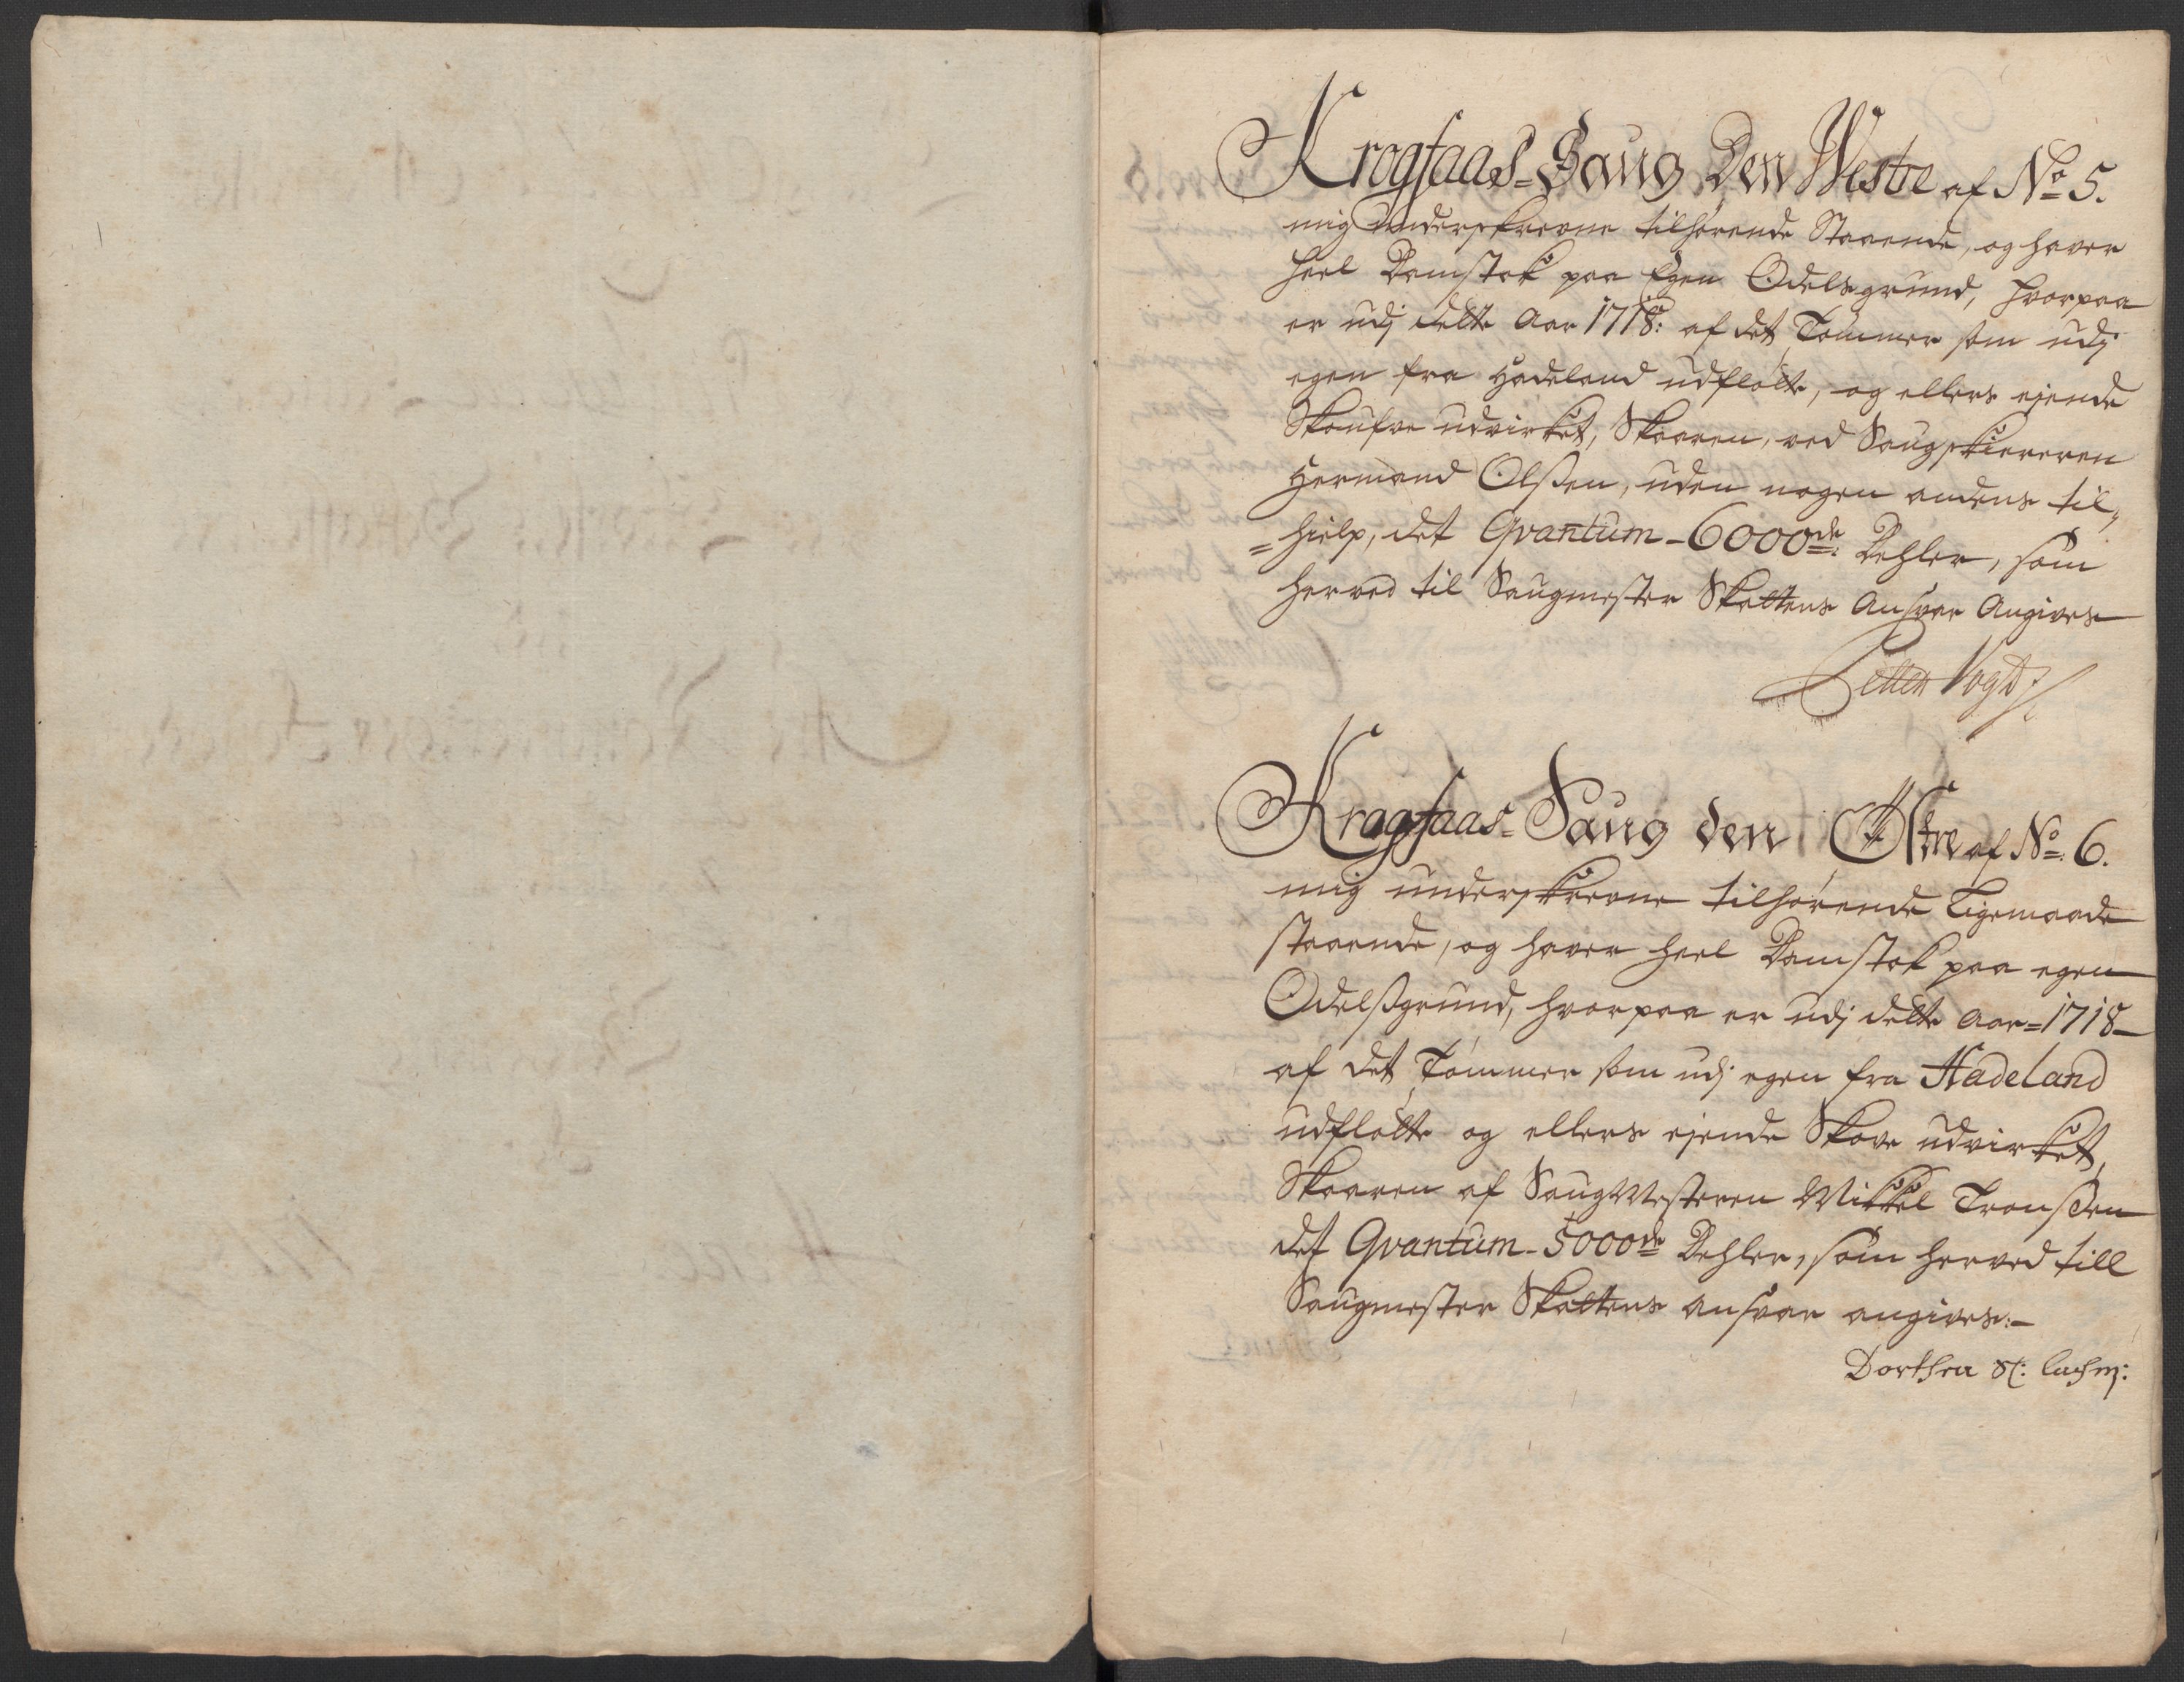 Krogfaas-Saug Den Westre af No 5.
mig underskrevne tilhørende Staaende, og haver
heel Damstok paa Egen Odelsgrund, hvorpaa
er udj dette Aar 1718: af det Tømmer som udj
egen fra Hadeland udfløtte, og ellers ejende
Skoufve udvirket, Skaaren, ved Saugskiereren
Hermand Olßen, uden nogen andens til,
=hielp, det Qvantum-6000de: Dehler, som
herved til Saugmester Skattens Ansvar Angives
Petter Vogt
Krogfaas-Saug den Østre af No: 6.
mig underskrevne tilhørende Ligemaade
staaende, og haver heel Damstok paa egen
Odelßgrund, hvorpaa er udj dette Aar=1718-
af det Tømmer som udj egen fra Hadeland
udfløtte og ellers ejende Skove udvirket,
Skaaren af Saugmesteren Mikkel Tronßen
det Qvantum-5000de Dehler, som herved till
Saugmester Skattens ansvar angives:-
Dorthea Sl: